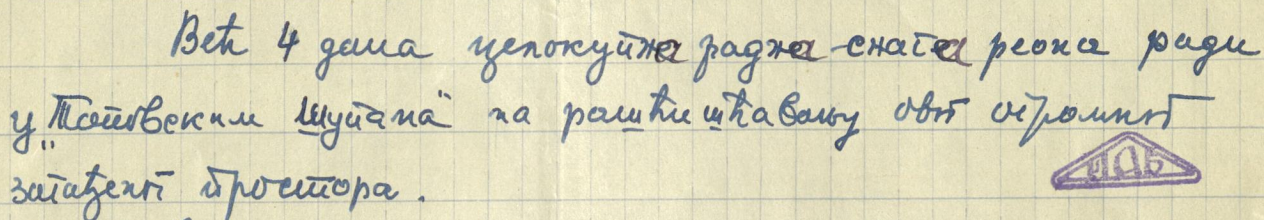 Већ 4 дана целокупна радна снага реона ради
у „Топовским Шупама" на рашћишћавању овог огромног
загађеног простора.
ИАБ